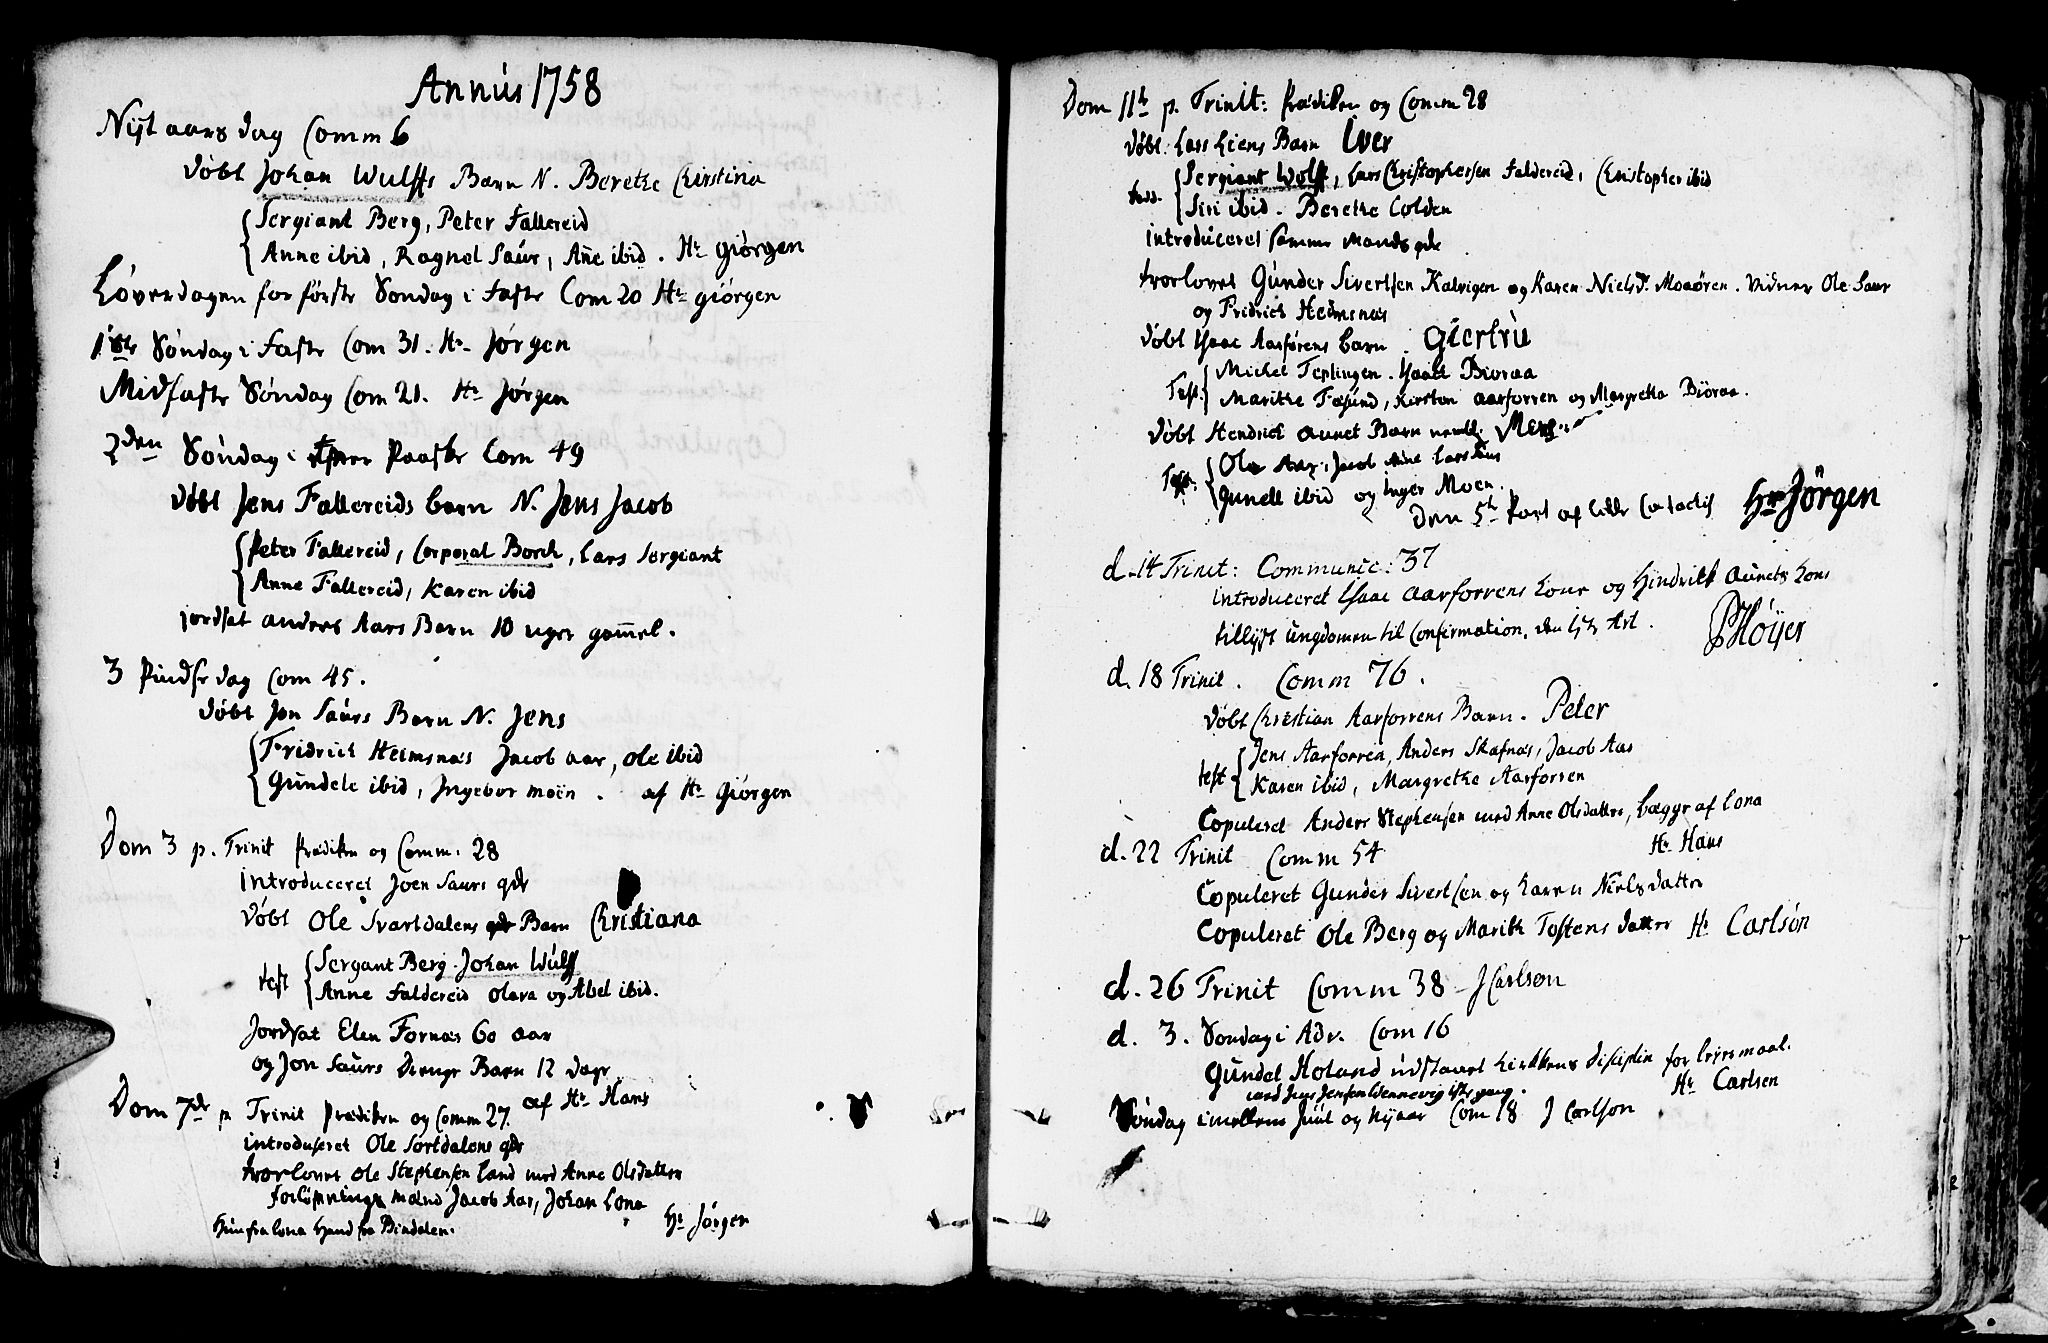 Annus 1758
Nyt aars dag Comm 6
Døbt Johan Wulffs Barn N. Berethe Chirstina
Sergiant Berg, Peter Fallereid
Anne ibid, Ragnel Saur, Añe ibid. Hr Giørgen
Løverdagen for første Søndag i Faste Com 20 Hr Giørgen
1ste Søndag i Faste Com 31. Hr Jørgen
Midfaste Søndag Com 21. Hr Jørgen
2den Søndag i Paaske Com 49
Døbt Jens Fallereids barn N. Jens Jacob
Peter Fallereid, Corporal Borch, Lars Sergiant
Anne Fallereid, Karen ibid
jordsat anders Aars Barn 10 uger gam̄el.
3 Pindse dag Com 45.
Døbt Jon Saurs Barn N. Jens
Fridrich Heimsnæs Jacob aar, ole ibid
Gundele ibid, Ingebor moen. af Hr Giørgen
Dom 3 p. Trinit Prædiken og Comm. 28
introduceret Joen Saurs qde
Døbt Ole Svartdalens Barn Christiana
test Sergant Berg. Johan Wulff
Anne Faldereid olava og Abel ibid.
Jordsat Elen Fornæs 60 aar
og Jon Saurs Drenge Barn 12 dage
af Hr Hans
Dom 7de p Trinit Prædiken og Comm 27.
introduseret Ole Sortdalens qde
trorlovet Ole Stephensen Land med Anne Olsdatter
forløfnings mænd Jacob Aar, Johan Lona
Hun fra Lona Hand fra Bindalen.
Hr Jørgen
Dom 11te p. Trinit: Prædiken og Comm 28
døbt Lars Liens Barn Iver
test. Sergiant Wolff, Lars Christophersen Faldereid, Christopher ibid
Siri ibid. Berethe Colden
introduceret samme Mands qde
trorlovet Gunder Sivertsen Kalvigen og Karen Nielsd. Moeøren. Vidner Ole Saur
og Fridrich Heimsnæs
døbt Isaac Aarforens barn Giertru
Test. Michel Teplingen. Isaack Bioraa
Marithe Fosund, Kirsten aarforren og Margretha Biöraa.
døbt Hendrick aunet Barn nembl.
Ole Aar, Jacob
gunell ibid og Inger Moen.
Den 5te Part af lille Hr Jørgen
d. 14 Trinit: Communic: 37
introduceret Isaac Aarforrens Kone og Hindrick Aunets Kone
tillyst Ungdommen til Confirmation,
PHöyer
d. 18 Trinit. Comm 76.
døbt Christian Aarforrens Barn. Peter
test Jens Aarforren, Anders Skafnæs, Jacob Aar
Karen ibid, Margrethe Aarforren
Copuleret Anders Stephensen med Anne Olsdatter, begge af Lona
Hr Hans
d. 22 Trinit Comm 54
Copuleret Gunder Sivertsen og Karen Nielsdatter
Copuleret Ole Berg og Marith Tostens datter Hr Carlsön
d. 26 Trinit Comm 38 J Carlson
d. 3. Söndag i Adv. Com 16
Gundel Holand udstaaet Kirkkens disciplin for leyersmaal.
med Jens Jensen Vennevig 1ste gang.
Hr Carlsen
Søndag imellem Juul og Nyaar Com 18 J Carlson